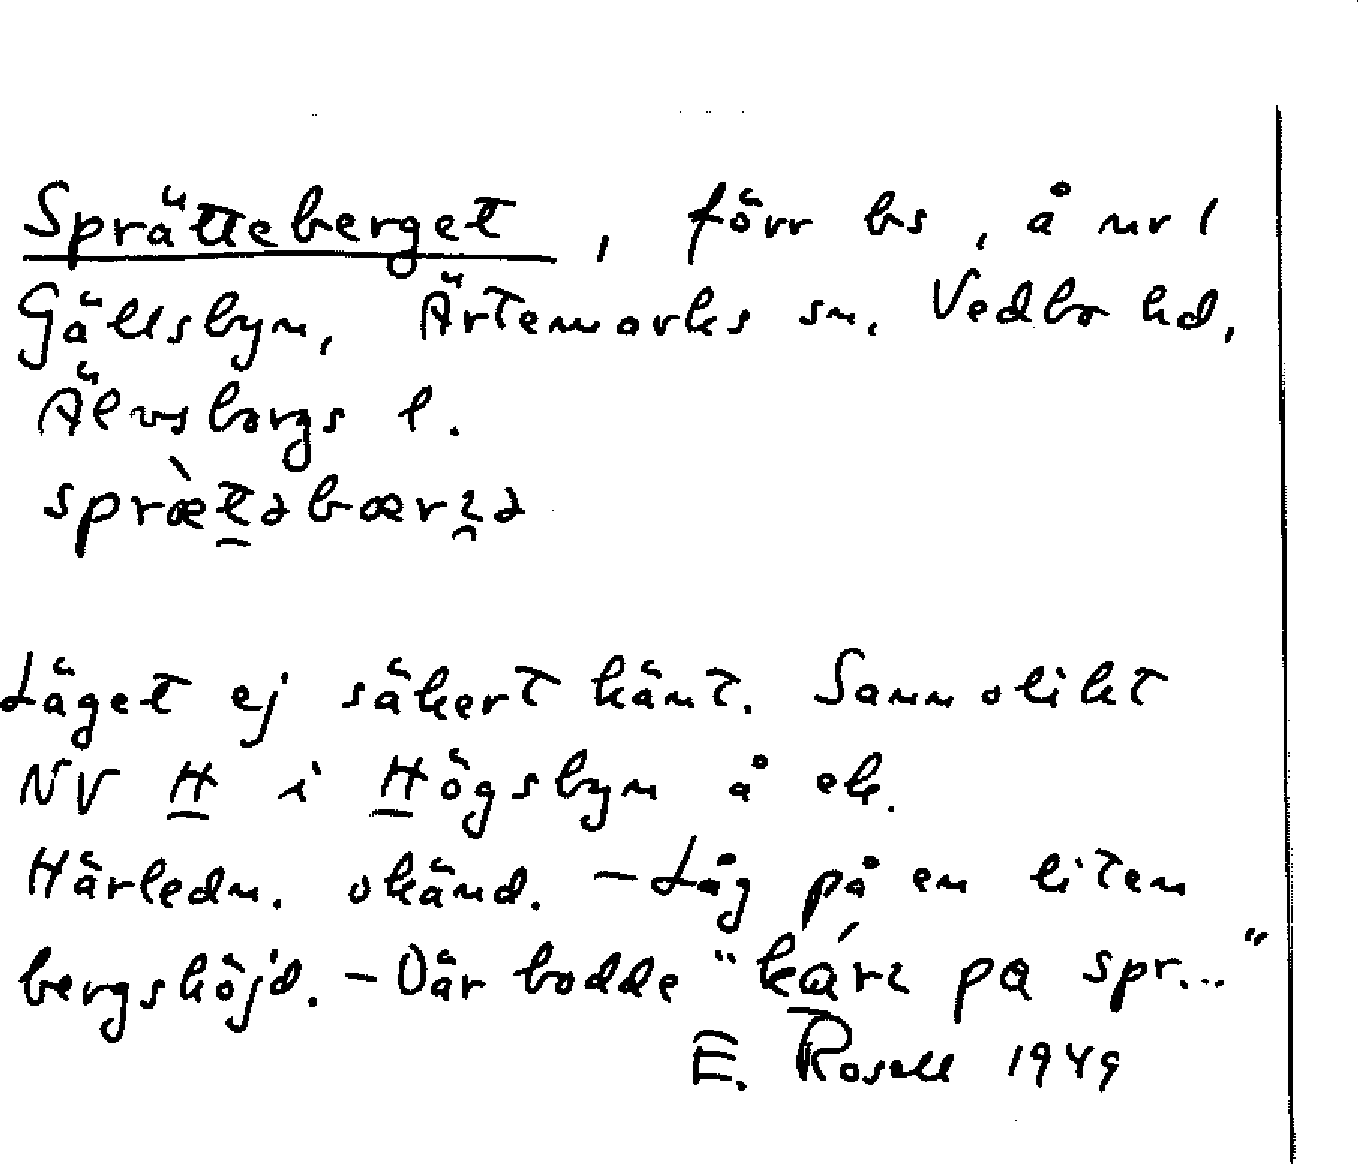 Sprätteberget, förr bs, å nr 1
Gällsbyn, Ärtemarks sn, Vedbo hd,
Älvsborgs l.
spræ̀t̲əbærɿ̯ə
Läget ej säkert känt. Sannolikt
NV H i Högsbyn å ek.
Härledn. okänd. – Låg på en liten
bergshöjd. – Där bodde "kárɿ pɑ spr..."
E. Rosell 1949